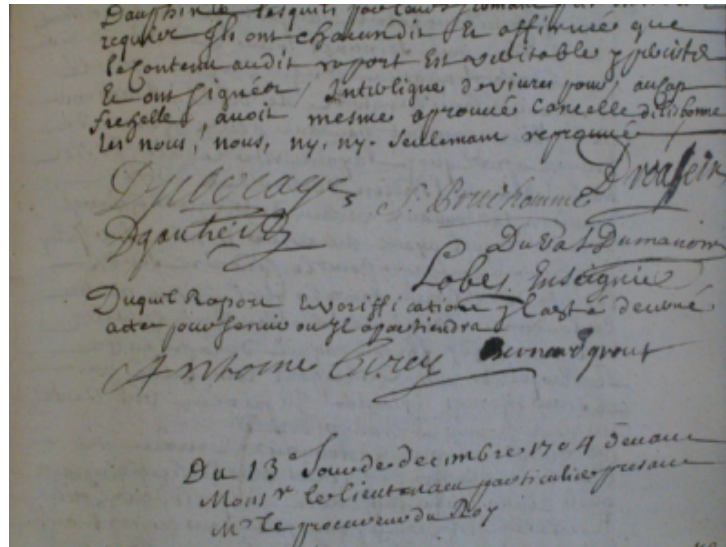 Dauphin lesquels par leurs serment
requis Ils ont chacun dit Et affirmé que
le Contenu audit raport Est veritable
Et ont signés, Interligne de vivres pour, au cap
frezelle, avoit mesme aprouvé Cancelle de lisbonne
les nous, nous, ny, ny. seulemant reprouvé
Dubocage J. Prudhomme
Dgautier
Duval Dumanoir
Lobes Enseignie
Duquel Raport Et veriffication Il a esté donné
acte pour servir ou Il apartiendra
Antoine Bernard grout
Du 13e Jour de decembre 1704 devant
Monsr le lieutenant particulier presance
Mr le procureur du Roy